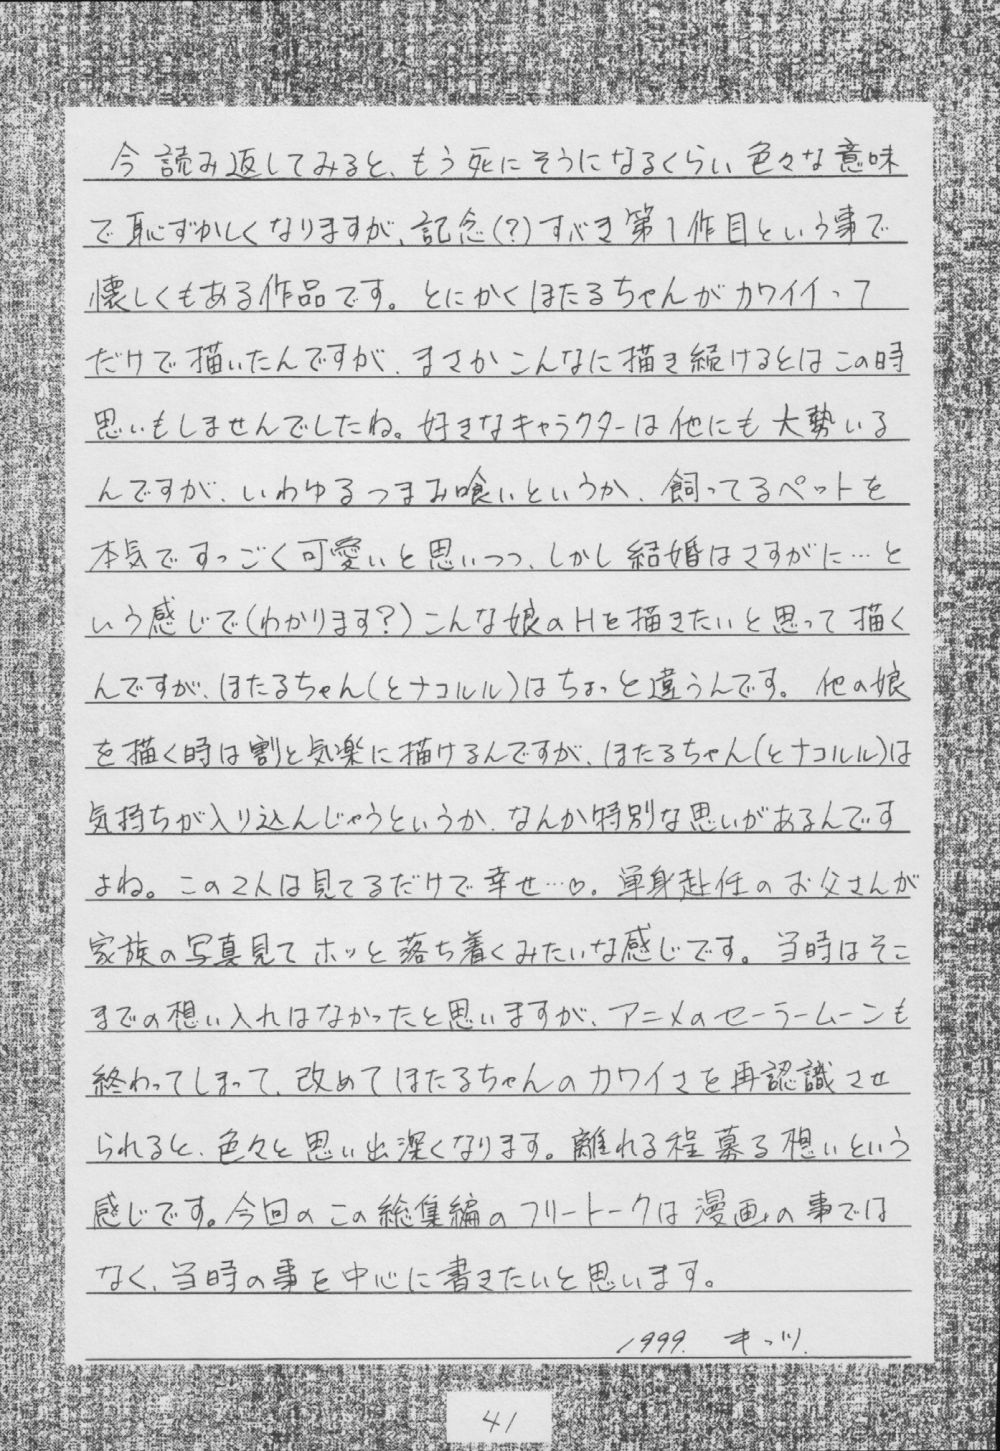 今読み返してみると、もう死にそうになるくらい色々な意味
で恥ずかしくなりますが、記念(?)すべき第1作目という事で
懐しくもある作品です。とにかくほたるちゃんがカワイイって
だけで描いたんですが、まさかこんなに描き続けるとはこの時
思いもしませんでしたね。好きなキャラクターは他にも大勢いる
んですが、いわゆるつまみ喰いというか、飼ってるペットを
本気ですっごく可愛いと思いつつ、しかし結婚はさすがに…と
いう感じで(わかります?)こんな娘のHを描きたいと思って描く
んですが、ほたるちゃん(とナコルル)はちょっと違うんです。他の娘
を描く時は割と気楽に描けるんですが、ほたるちゃん(とナコルル)は
気持ちが入り込んじゃうというか、なんか特別な思いがあるんです
よね。この2人は見てるだけで幸せ…♡。単身赴任のお父さんが
家族の写真見てホッと落ち着くみたいな感じです。当時はそこ
までの想い入れはなかったと思いますが、アニメのセーラームーンも
終わってしまって、改めてほたるちゃんのカワイさを再認識させ
られると、色々と思い出深くなります。離れる程募る想いという
感じです。今回のこの総集編のフリートークは漫画の事では
なく、当時の事を中心に書きたいと思います。
1999. キッツ.
41